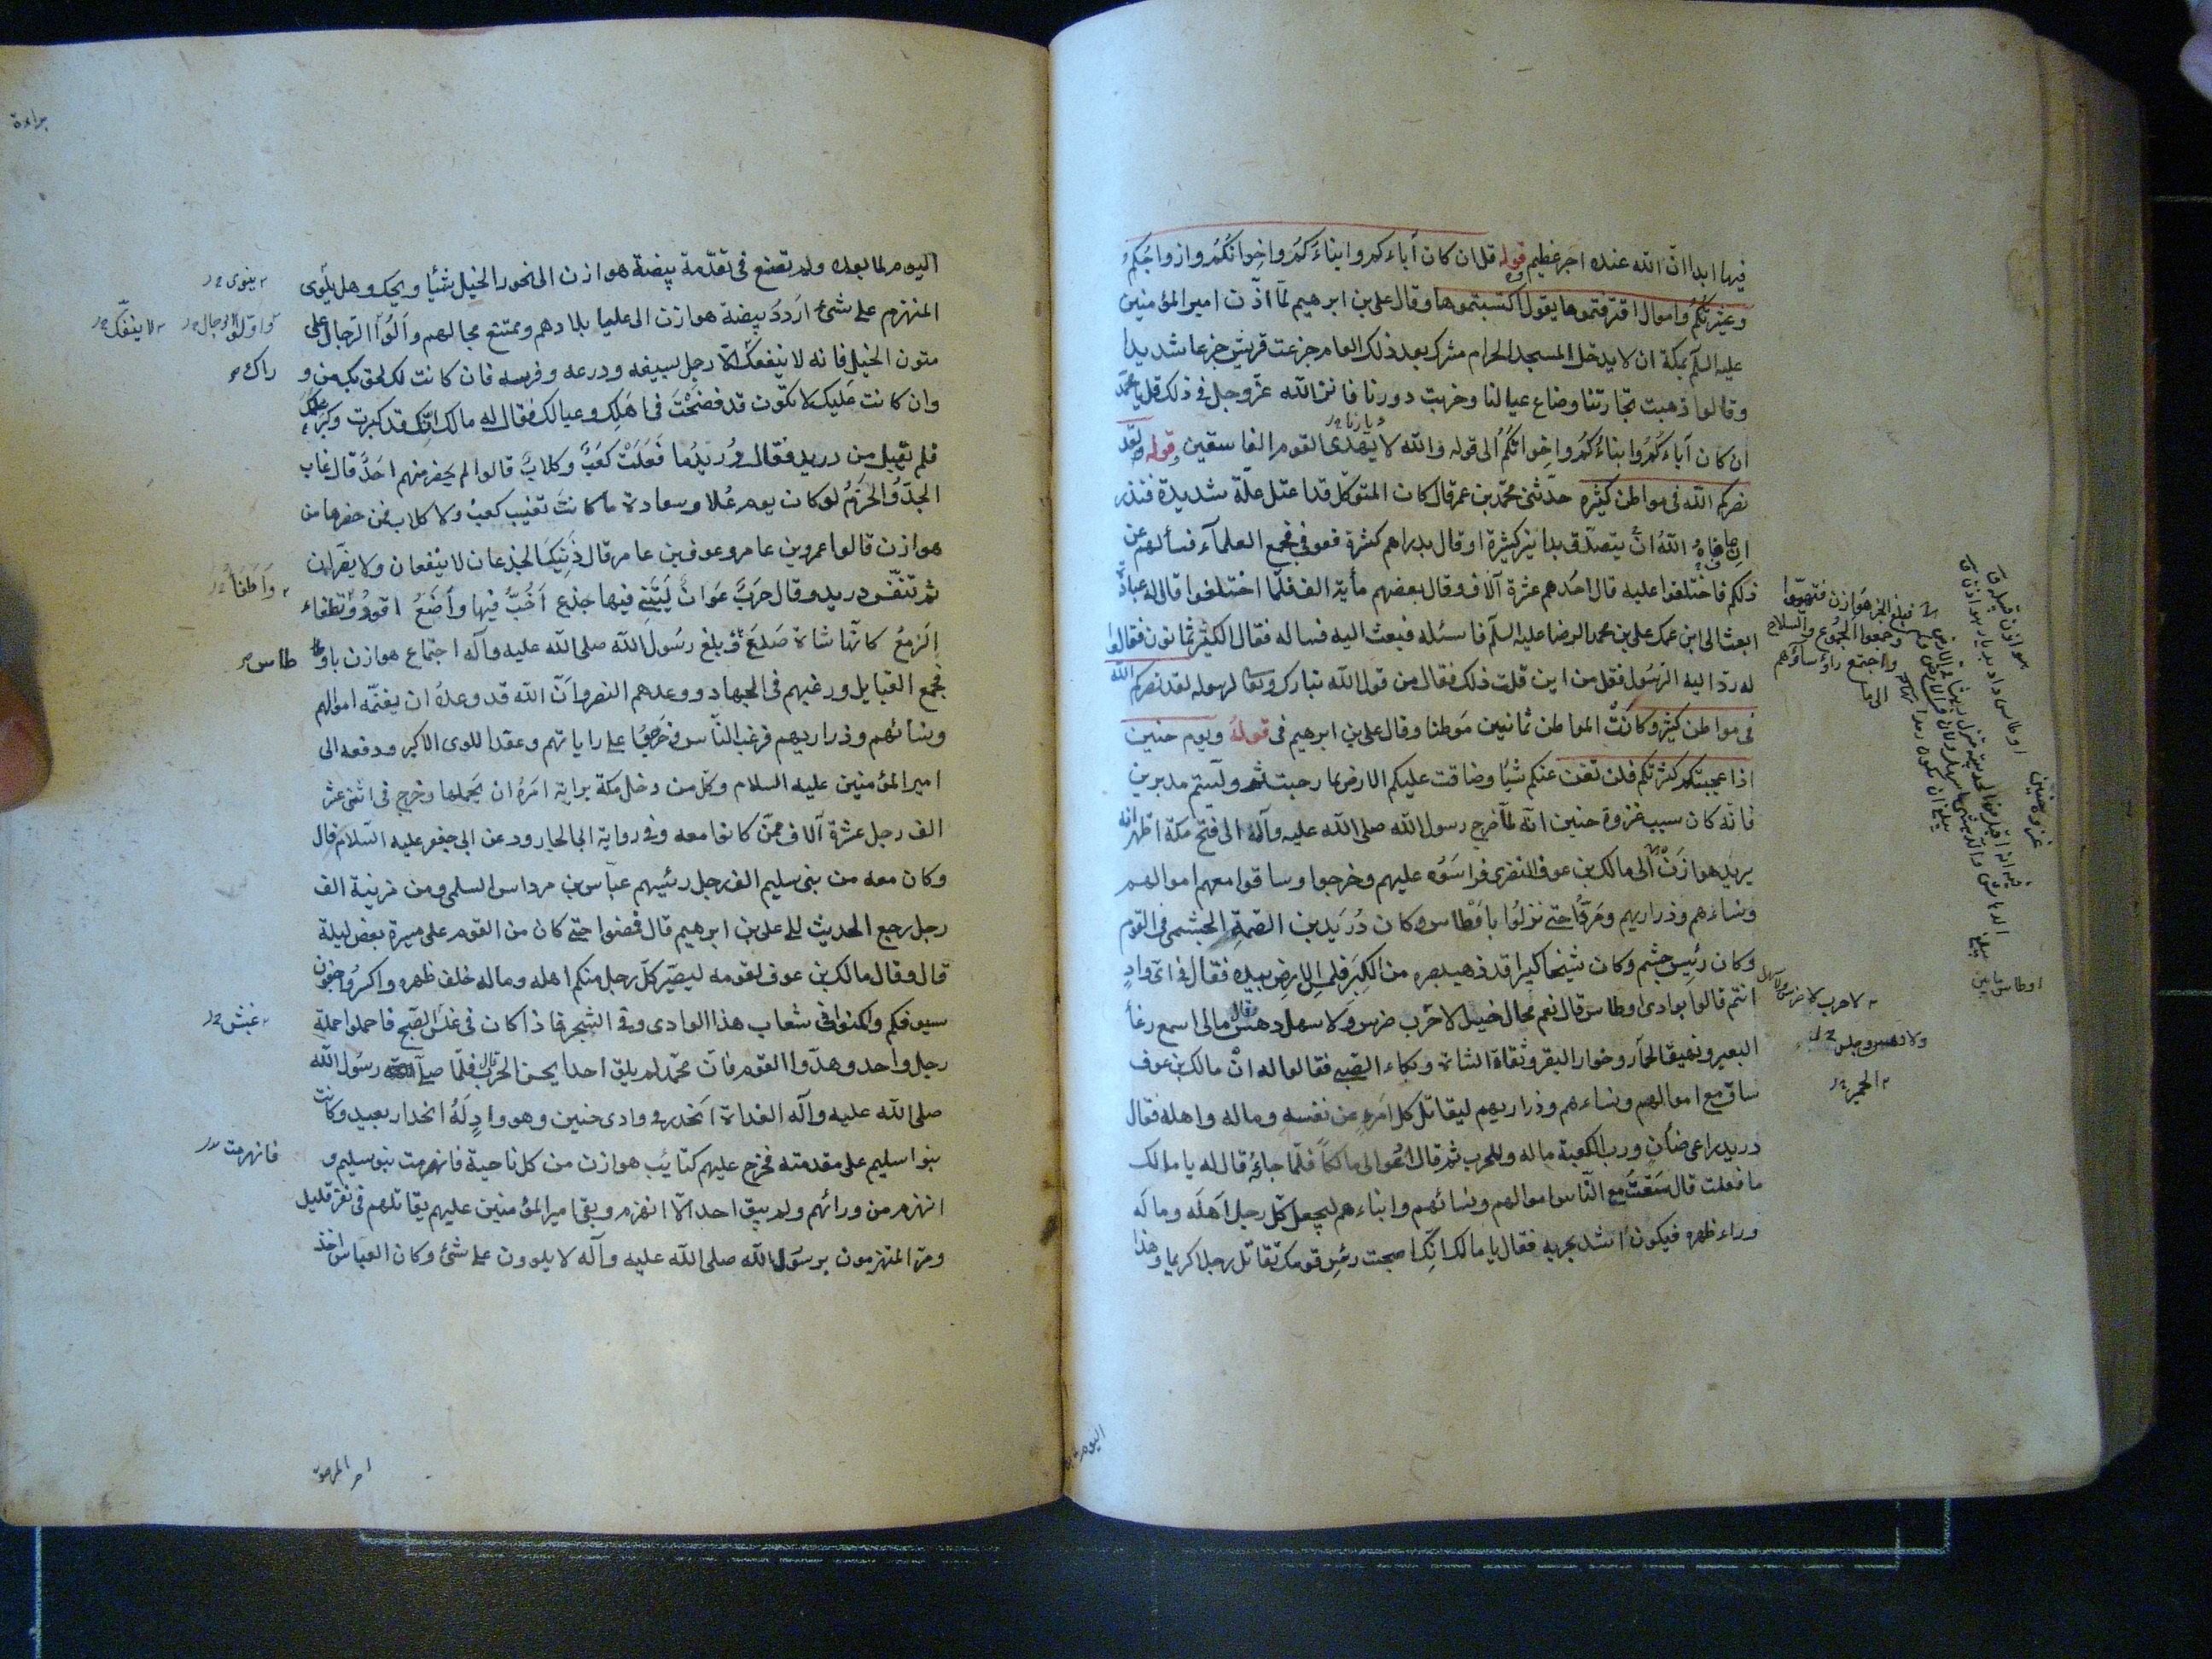 فيها ابدا ان الله عنده اجر عظيم قوله قل ان كان أباءكم وابناءكم واخوانكم وازواجكم
وعشيرتكم واموال اقترفتموها يقول اكتسبتموها وقال علي بن ابرهيم لمّا اذّن امير المؤمنين
عليه السلم بمكة ان لا يدخل المسجد الحرام مشرك بعد ذلك العام جزعت قريش جزعا شديدا
وقالوا ذهبت تجارتنا وضاع عيالنا وخربت دورنا فانزل الله عزّ وجل في ذلك قل يا محمّد
ان كان آباءكم وابناءكم واخوانكم الى قوله والله لا يهدى القوم الفاسقين وقوله لقد
نصركم الله في مواطن كثيرة حدّثنى محمّد بن عمر قال كان المتوكل قد اعتل علّة شديدة فنذر
ان عافاه الله ان يتصدّق بدنانير كثيرة او قال بدراهم كثيرة فعوفى فجمع العلمآء فسألهم عن
ذلكم فاختلفوا عليه قال احدهم عشرة آلاف وقال بعضهم مأية الف فلمّا اختلفوا قال له عبادة
ابعث الى ابن عمك علي بن محمد الرضا عليه السلم فاسئله فبعث اليه فساله فقال الكثير ثمانون فقالوا
له ردّ اليه الرسول فقل من اين قلت ذلك فقال من قول الله تبارك وتعالى لرسوله لقد نصركم الله
في مواطن كثيرة وكانت المواطن ثمانين موطنا وقال علي بن ابرهيم في قوله ويوم حنين
اذ اعجبتكم كثرتكم فلن تغن عنكم شيئا وضاقت عليكم الارض بما رحبت ثم ولّيتم مدبرين
فانّه كان سبب غزوة حنين انه لمّا خرج رسول الله صلى الله عليه وآله الى فتح مكة اظهر انه
يريد هوازن الى مالك بن عوف النضرى فراسوه عليهم وخرجوا وساقوا معهم اموالهم
ونساءهم وذراريهم ومرّوا حتى نزلوا باوطاس وكان دُرَيد بن الصّمة الجشمى في القوم
وكان رئيس جشم وكان شيخا كبيرا قد ذهب بصره من الكبر فلمس الارض بيده فقال في ايّ وادٍ
انتم قالوا بوادى اوطاس قال نعم مجال خيل لا حزن ضرس ولا سهل دهس مالى اسمع رغاء
البعير ونهيق الحمار وخوار البقر وثغاء الشاة وبكاء الصّبى فقالوا له انّ مالك بن عوف
ساق مع اموالهم ونساءهم وذراريهم ليقاتل كل امرء عن نفسه وماله واهله فقال
دريد راعى ضأن ورب الكعبة ماله وللحرب ثم قال ادعوا لى مالكاً فلمّا جاءه قال له يا مالك
ما فعلت قال سقت مع النّاس اموالهم ونسائهم وابناءهم ليجعل كل رجل اهله وماله
وراء ظهره فيكون اشد بحربه فقال يا مالك انّك اصبحت رئيس قومك تقاتل رجلا كريما وهذا
غزوه حنين
فبلغ الخبر هوازن فتهيّوا
وجمعوا الجموع والسلاح
واجتمع رؤساءهم
الى مالك
الحمير
اليوم
براءة
اليوم لما بعده ولم تصنع في تقدّمة بيضة هوازن الى نحور الخيل شيئا ويحك وهل يلوى
المنهزم على شىء ارددّ بيضة هوازن الى عليا بلادهم وممتنع مجالهم والقوا الرّجال على
متون الخيل فانه لا ينفعك الّا رجل بسيفه ودرعه وفرسه فان كانت لك لحق بك من و
وان كانت عليك لا تكون قد فضحت في اهلك وعيالك فقال له مالك انّك قد كبرت وكبر علمك
فلم تقبل من دريد فقال دريد ما فعلت كعب وكلاب قالوا لم يحضر منهم احد قال غاب
الجدّ والحزم لو كان يوم علا وسعادة ما كانت تغيب كعب ولا كلاب فمن حضرها من
هوازن قالوا عمرو بن عامر وعوف بن عامر قال ذينك الجذعان لا ينفعان ولا يضرّان
ثم تنفّس دريد وقال حرب عوان ليتنى فيها جذع اخبّ فيها واضع اقود وطفاء
الزمع كانّها شاة صدع وبلغ رسول الله صلى الله عليه وآله اجتماع هوازن باوطاس
فجمع القبايل ورغبهم في الجهاد ووعدهم النصر وانّ الله قد وعده ان يغنّمه اموالهم
ونسائهم وذراريهم فرغب النّاس وخرجوا على راياتهم وعقد اللوى الاكبر ودفعه الى
امير المؤمنين عليه السلام وكل من دخل مكة براية امره ان يحملها وخرج في اثنى عشر
الف رجل عشرة آلاف ممّن كانوا معه وفي رواية ابى الجارود عن ابى جعفر عليه السّلام قال
وكان معه من بنى سليم الف رجل رئيسهم عباس بن مرداس السلمى ومن مزينة الف
رجل رجع الحديث الى علي بن ابرهيم قال فمضوا حتى كان من القوم على مسيرة بعض ليلة
قال وقال مالك بن عوف لقومه ليصيّر كل رجل منكم اهله وماله خلف ظهره واكسروا جفون
سيوفكم واكمنوا في شعاب هذا الوادى وفي الشجر فاذا كان في غلس الصّبح فاحملوا حملة
رجل واحد وهدّوا القوم فانّ محمّدا لم يلق احدا يحسن الحرب قال فلمّا صلّى رسول الله
صلى الله عليه وآله الغداة انحدر في وادى حنين وهو وادٍ له انحدار بعيد وكانت
بنوا سليم على مقدمته فخرج عليهم كتائب هوازن من كل ناحية فانهزمت بنو سليم و
انهزم من ورائهم ولم يبق احد الّا انهزم وبقى امير المؤمنين عليهم يقاتلهم في نفر قليل
ومرّ المنهزمون برسول الله صلى الله عليه وآله لا يلوون على شىء وكان العباس اخذ
لا ينفكّ
غبش
فانهزمت